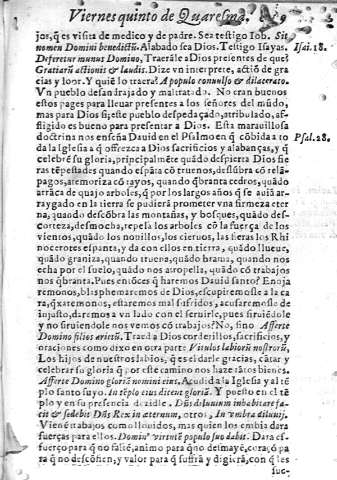 Viernes quinto de Quaresma. 9
jos, q̃ es visita de medico y de padre. Sea testigo Iob. Sit
nomen Domini benedictũ. Alabado sea Dios. Testigo Isayas.
Isai. 18.
Deferetur munus Domino, Traerãle a Dios presentes de que?
Gratiarũ actionis & laudis. Dize vn interprete, actiõ de gra
cias y loor. Y quiẽ lo traera? A populo conuulso & dilacerato.
Vn pueblo desandrajado y maltratado. No eran buenos
estos pages para lleuar presentes a los señores del mũdo,
mas para Dios si; este pueblo despedaçado, atribulado, af-
fligido es bueno para presentar a Dios. Esta marauillosa
doctrina nos enseña Dauid en el Psalmo en q̃ cõbida a to
Psal. 28.
da la Iglesia a q̃ offrezca a Dios sacrificios y alabanças, y q̃
celebrẽ su gloria, principalmẽte quãdo despierta Dios fie
ras tẽpestades quando espãta cõ truenos, deslũbra cõ relã-
pagos, atemoriza cõ rayos, quando q̃branta cedros, quãdo
arrãca de quajo arboles, q̃ por los largos años q̃ se auiã ar-
raygado en la tierra se pudierã prometer vna firmeza eter
na, quando descõbra las montañas, y bosques, quãdo des-
corteza, desmocha, repela los arboles cõ la fuerça de los
vientos, quãdo los nouillos, los cieruos, las fieras los Rhi
nocerotes espanta, y da con ellos en tierra, quãdo llueue,
quãdo graniza, quando truena, quãdo brama, quando nos
echa por el suelo, quãdo nos atropella, quãdo cõ trabajos
nos q̃branta. Pues entõces q̃ haremos Dauid santo? Enoja
remonos, blasphemaremos de Dios, escupiremosle a la ca
ra, q̃xaremonos, estaremos mal sufridos, acusaremosle de
injusto, daremos a vn lado con el seruirle, pues siruiẽdole
y no siruiendole nos vemos cõ trabajos? No, sino Afferte
Domino filios arietũ. Traed a Dios corderillos, sacrificios, y
oraciones como dixo en otra parte Vitulos labiorũ nostrorũ.
Los hijos de nuestros labios, q̃ es el darle gracias, cãtar y
celebrar su gloria q̃ por este camino nos haze tãtos bienes.
Afferte Domino gloriã nomini eius. Acudid a la Iglesia y al tẽ
plo santo suyo. In tẽplo eius dicent gloriã. Y puesto en el tẽ
plo y en su presencia dezidle. Dñs diluuium inhabitare fa-
cit & sedebit Dñs Rex in aeternum, otros, In vmbra diluuij.
Viene trabajos como llouidos, mas quien los embia dara
fuerças para ellos. Dominus virtutẽ populo suo dabit. Dara es-
fuerço para q̃ no falte, animo para q̃ no desmaye, coraçõ pa
ra q̃ no descõfien, y valor para q̃ suffrã y digierã, con q̃ les
suc-